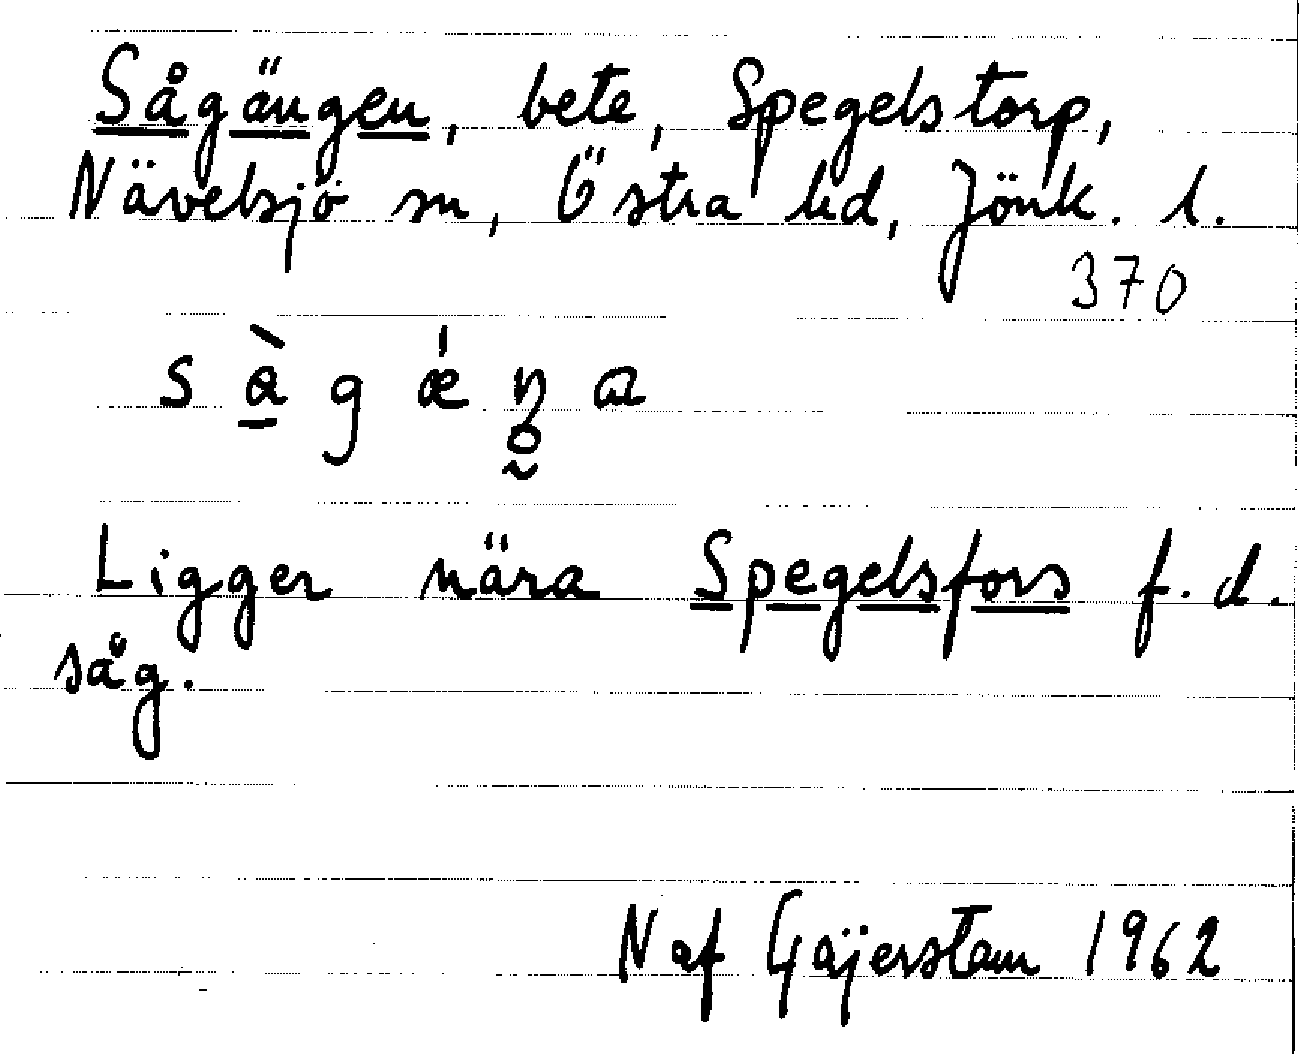 Sågängen, bete, Spegelstorp,
Nävelsjö sn, Östra hd, Jönk. l.
370
s å̀ g ǽ ŋ a
Ligger nära Spegelsfors f.d.
såg.
N af Gäjerstam 1962